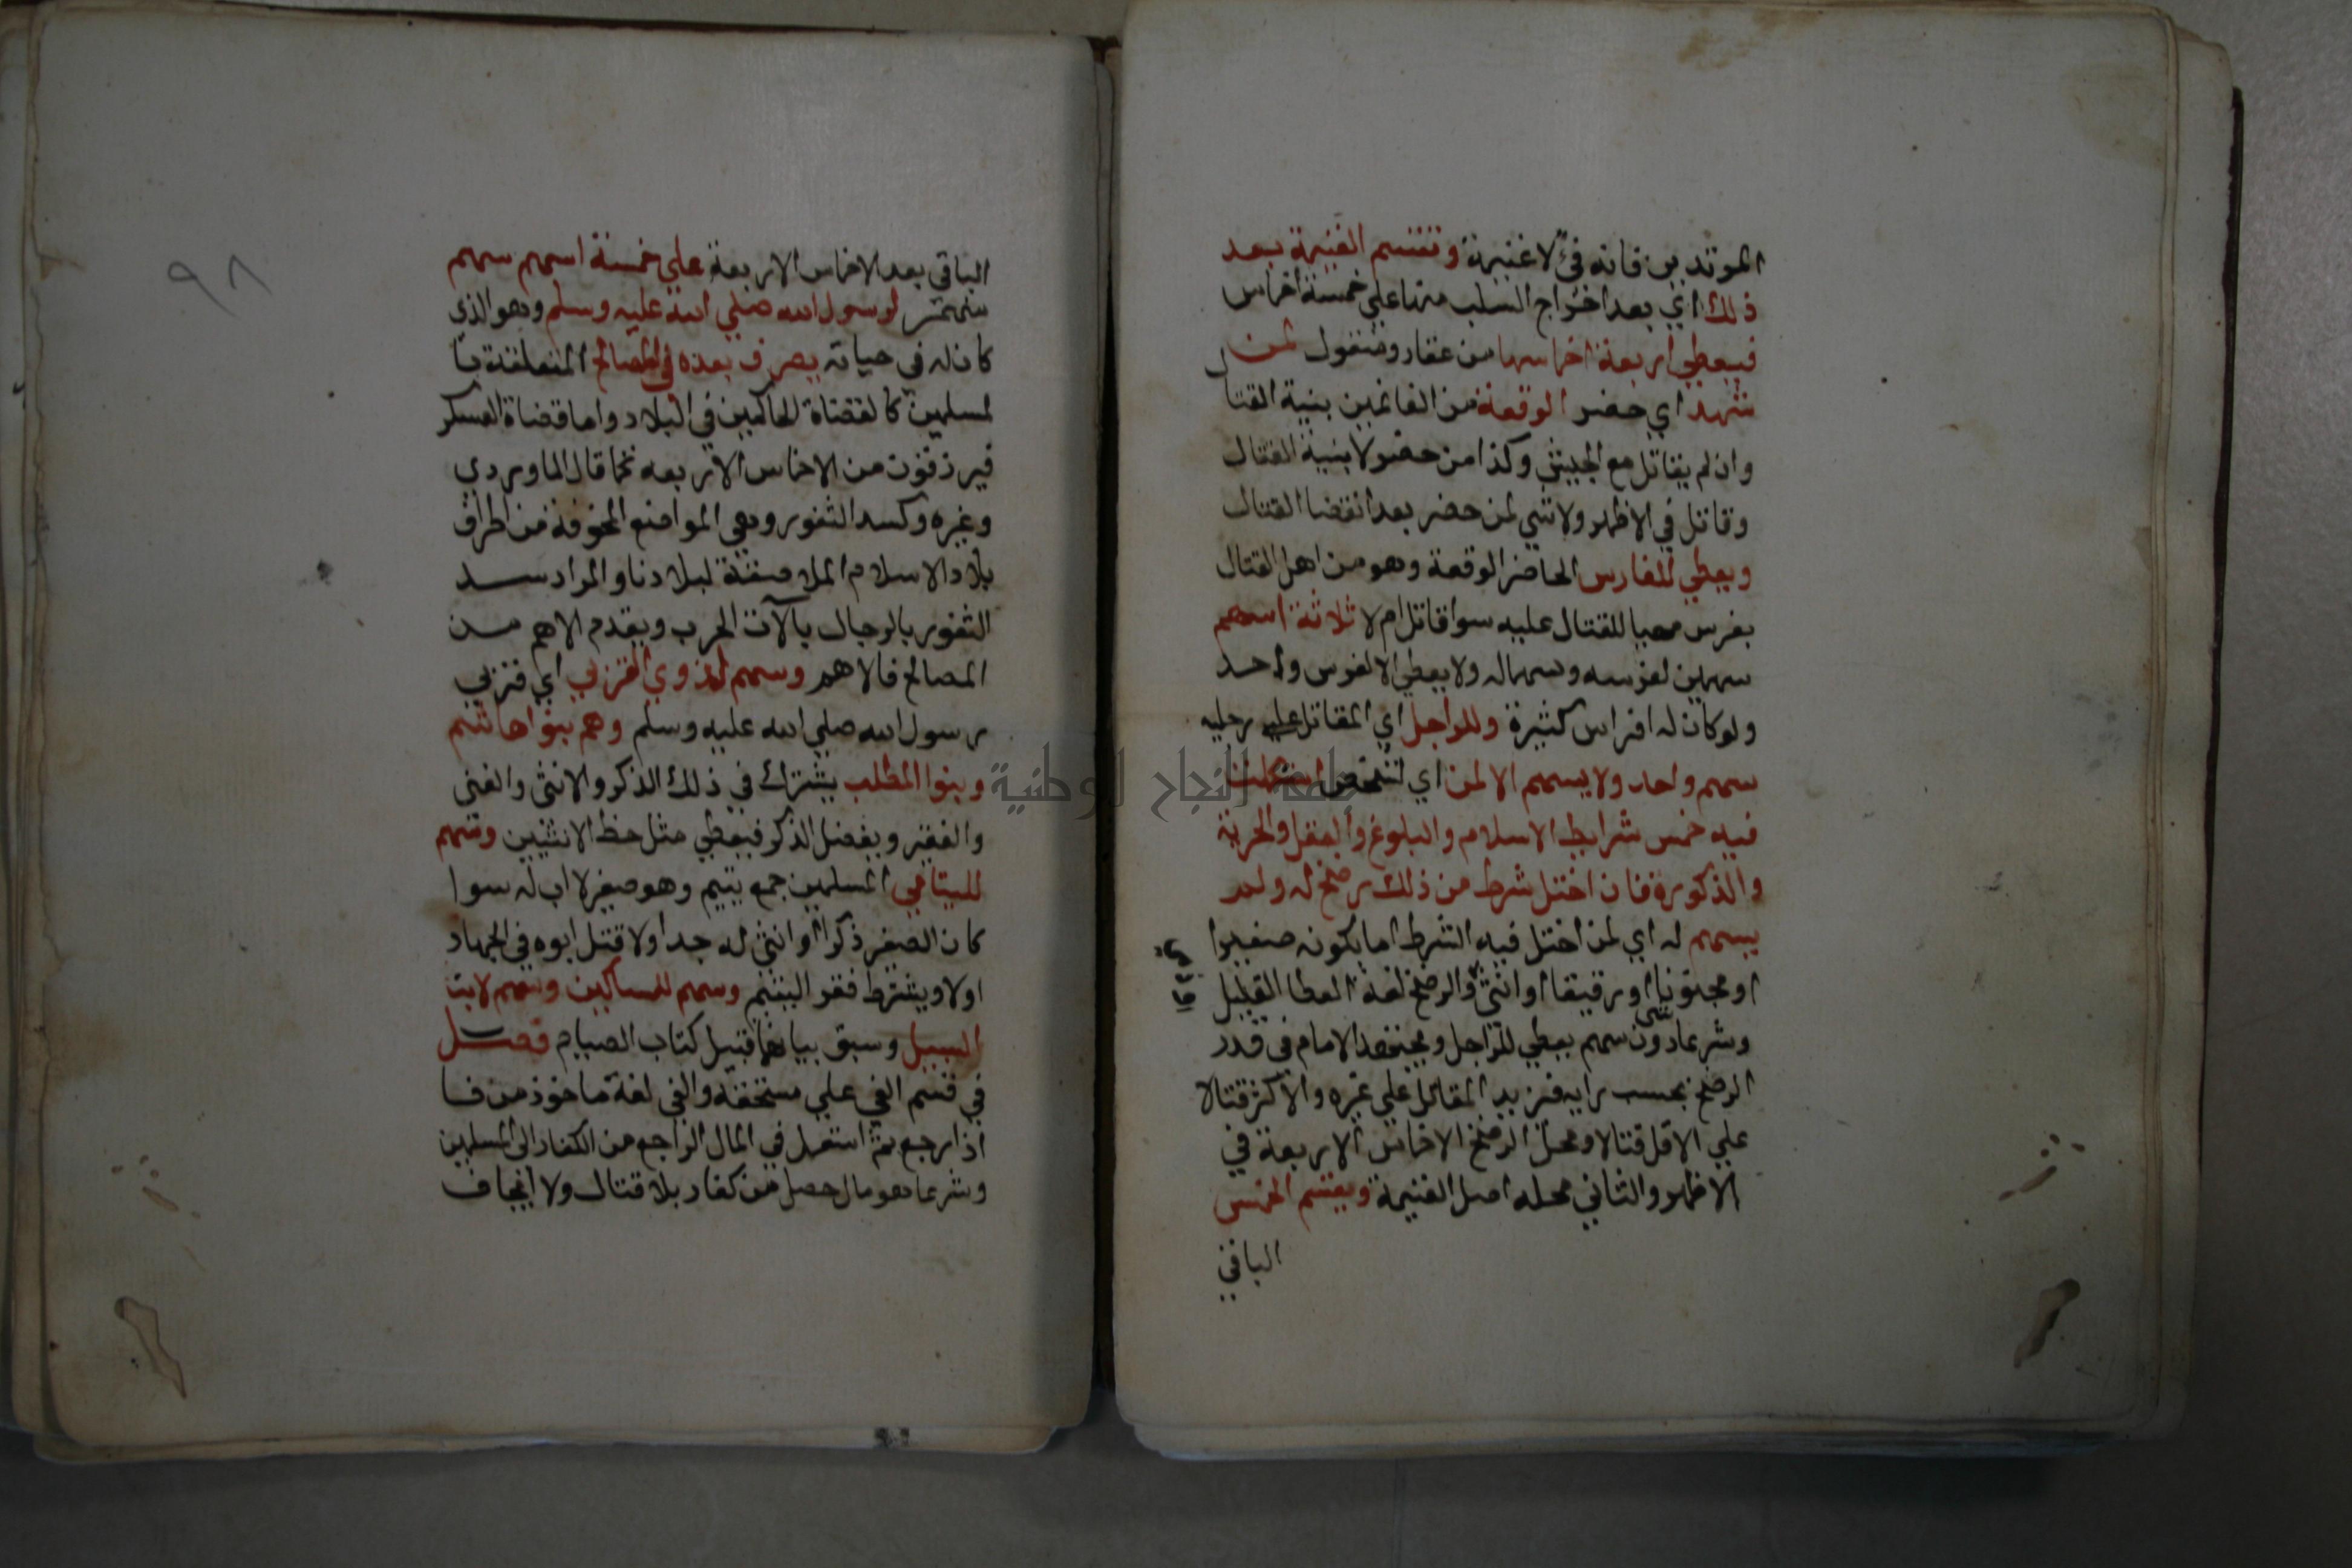 المرتدين فانه فئ لا غنيمة وتقسم الغنيمة بعد
ذلك اي بعد اخراج السلب منها على خمسة اخماس
فيعطي اربعة اخماسها من عقار ومنقول لمن
شهد اي حضر الوقعة من الغانمين بنية القتال
وان لم يقاتل مع الجيش وكذا من حضر لا بنية القتال
وقاتل في الاظهر ولا شي لمن حضر بعد انقضا القتال
ويعطي للفارس الحاضر الوقعة وهو من اهل القتال
بفرس مهيا للقتال عليه سوا قاتل ام لا ثلاثة اسهم
سهمين لفرسه وسهما له ولا يعطي الا لفرس واحد
ولو كان له افراس كثيرة وللراجل اي المقاتل علي رجليه
سهم واحد ولا يسهم الا لمن اي لشخص استكملت
فيه خمس شرايط الاسلام والبلوغ والعقل والحرية
والذكورة فان اختل شرط من ذلك رضخ له ولم
يسهم له اي لمن اختل فيه الشرط اما بكونه صغيرا
او مجنونا او رقيقا او انثى والرضخ لغة العطا القليل
وشرعا شي دون سهم يعطي للراجل ويجتهد الامام في قدر
الرضخ بحسب رايه فيزيد المقاتل علي غيره والاكثر قتالا
علي الاقل قتالا ومحل الرضخ الاخماس الاربعة في
الاظهر والثاني محله اصل الغنيمة ويقسم الخمس
الباقي
٩٨
الباقي بعد الاخماس الاربعة علي خمسة اسهم سهم
منه لرسول الله صلي الله عليه وسلم وهو الذي
كان له في حياته يصرف بعده في المصالح المتعلقة با
لمسلمين كالقضاة الحاكمين في البلاد واما قضاة العسكر
فيرزقون من الاخماس الاربعه كما قال الماوردي
وغيره وكسد الثغور وهي المواضع المخوفة من اطراف
بلاد الاسلام الملاصقة لبلادنا والمراد سد
الثغور بالرجال بآلات الحرب ويقدم الاهم من
المصالح فالاهم وسهم لذوي القربي اي قربي
رسول الله صلي الله عليه وسلم وهم بنوا هاشم
وبنوا المطلب يشترك في ذلك الذكر والانثى والغني
والفقير ويفضل الذكر فيعطي مثل حظ الانثيين وسهم
لليتامي المسلمين جمع يتيم وهو صغير لا اب له سوا
كان الصغير ذكرا او انثى له جد اولا قتل ابوه في الجهاد
اولا ويشترط فقر اليتيم وسهم للمساكين وسهم لابنا
السبيل وسبق بيانهما قبيل كتاب الصيام فصل
في قسم الفي علي مستحقه والفي لغة ماخوذ من فا
اذا رجع ثم استعمل في المال الراجع من الكفار الى المسلمين
وشرعا هو مال حصل من كفار بلا قتال ولا ايجاف
جامعة النجاح الوطنية